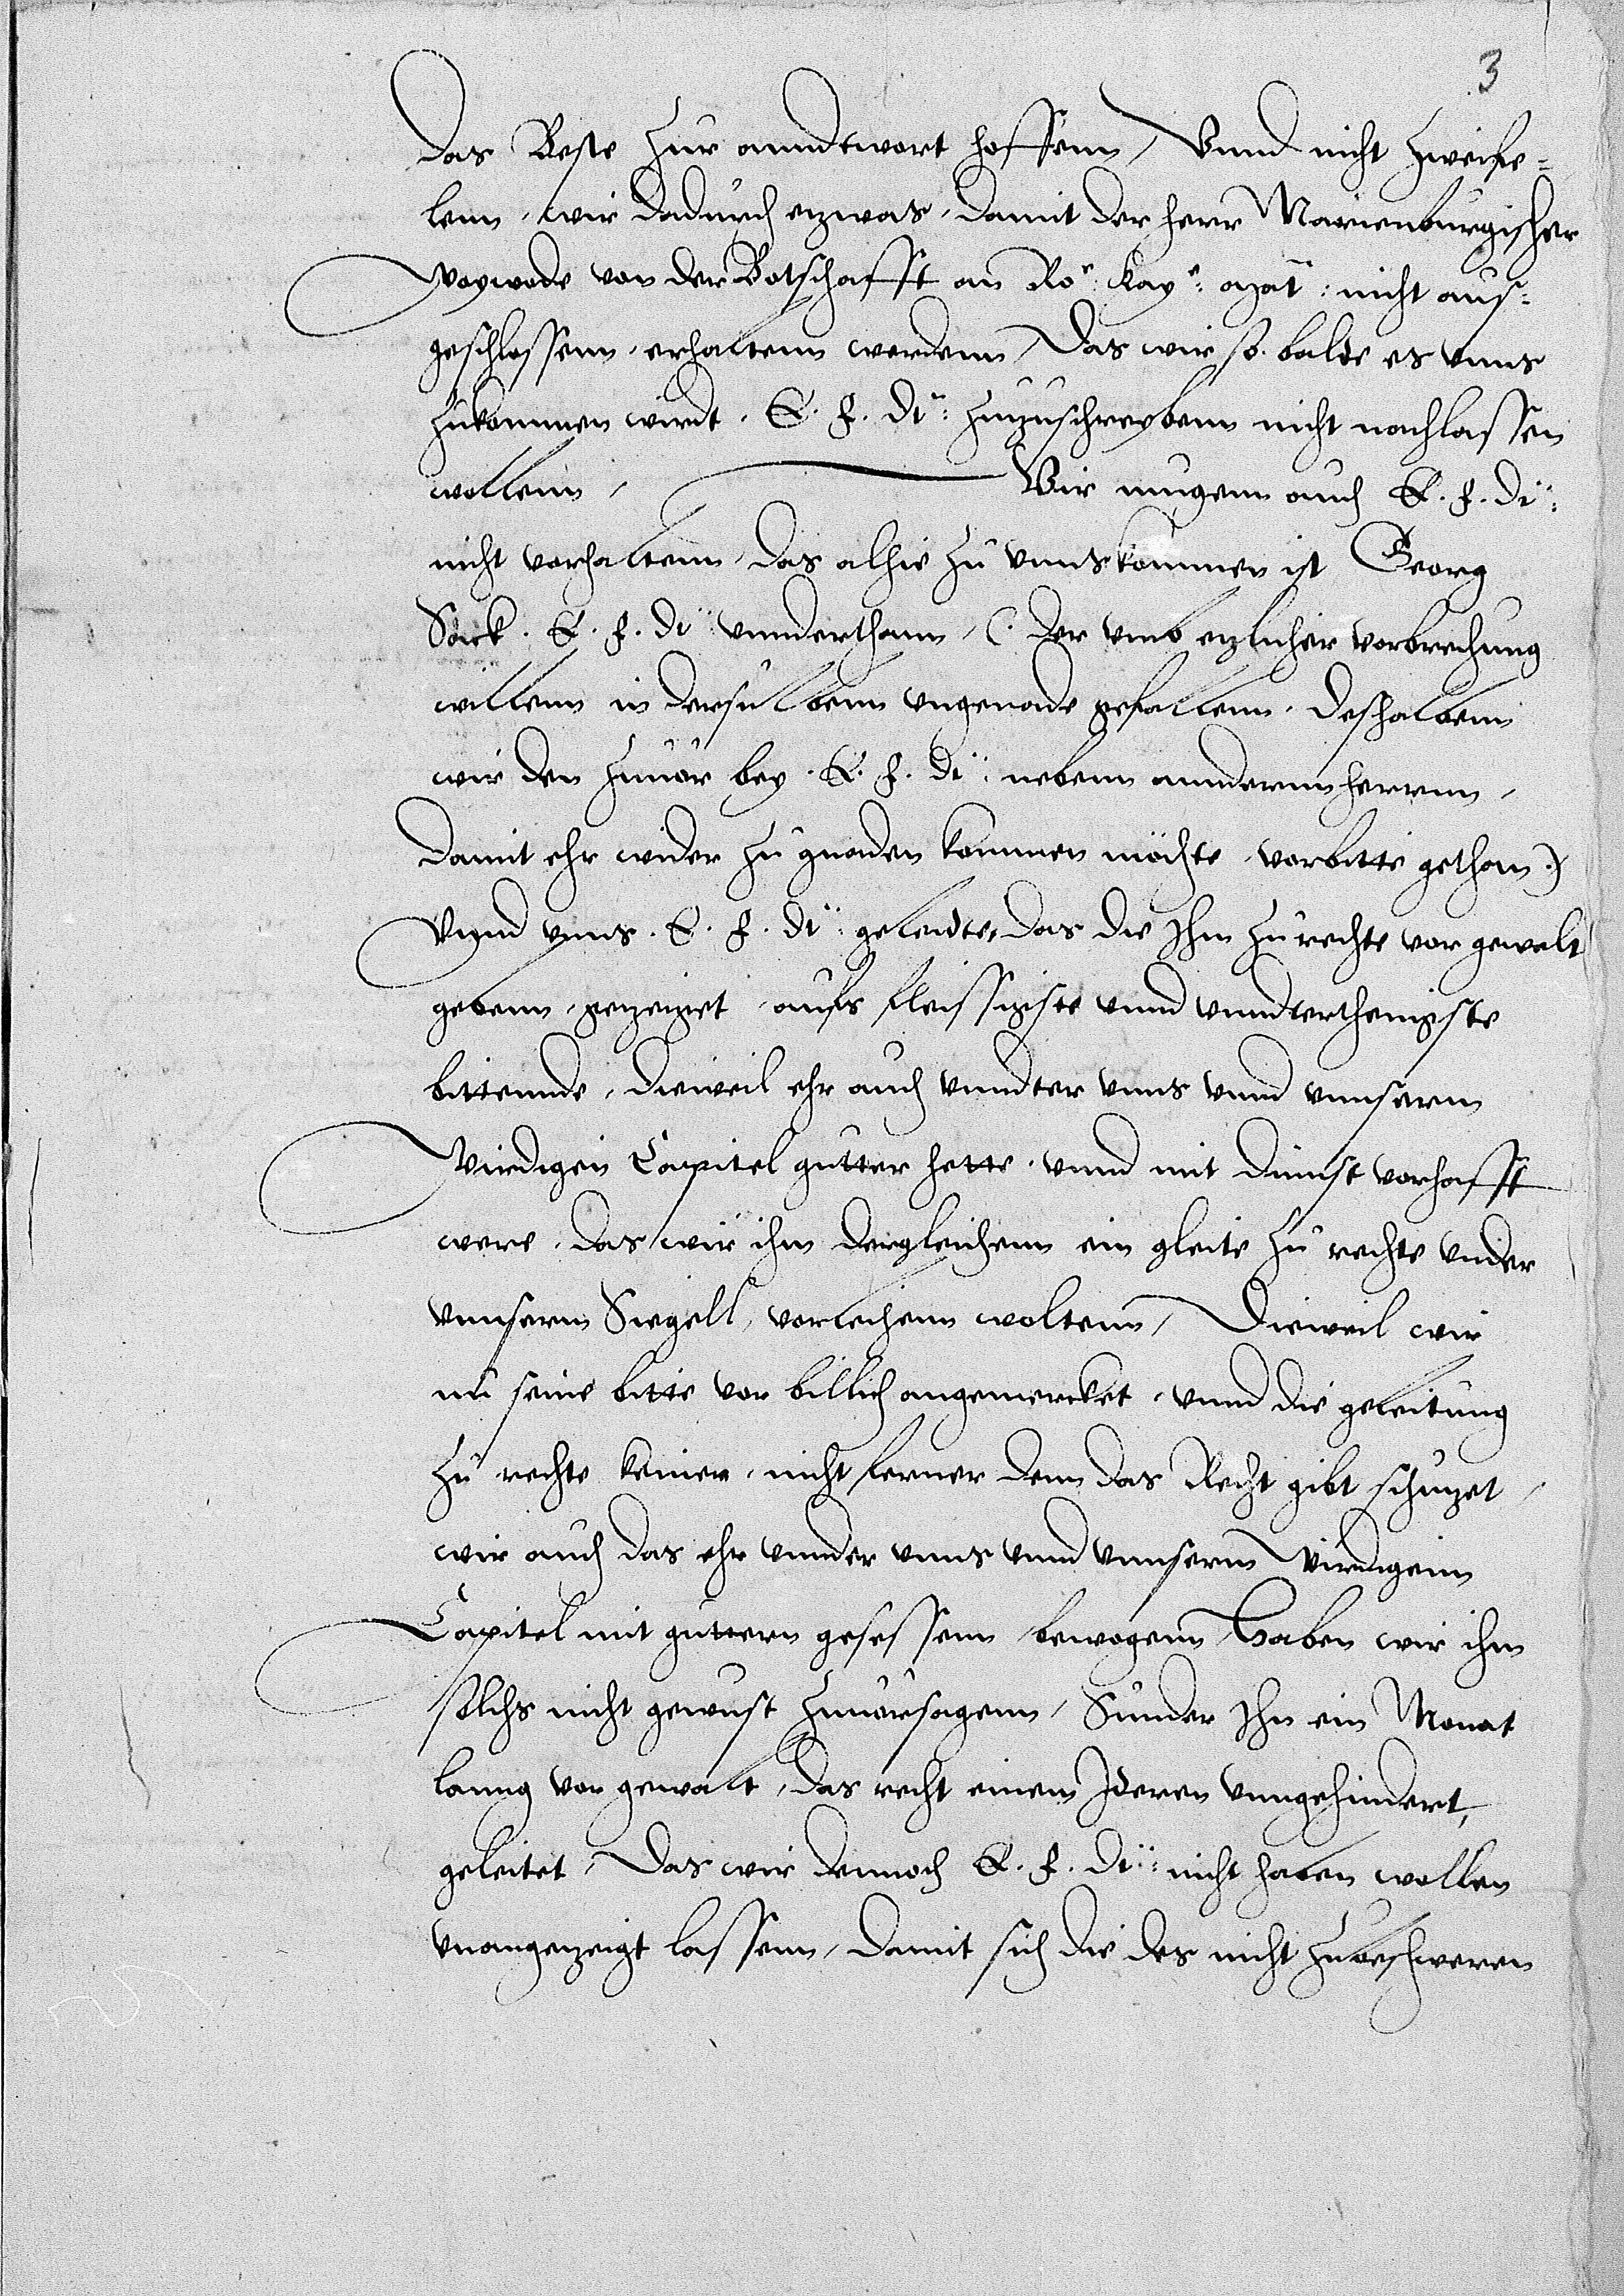 3
das Beste zur anndtwort hoffenn, Vnnd nicht zweife=
lenn, wir dadurch etzwas, damit der herr Marienburgischer
Woywode von der Botschafft an Ro: Kay: Mat: nicht aus=
geschlossenn, erhaltenn werdenn, Das wir so balde es vnns
zukommen wirdt, E. f. Dt: zuzuschreybenn nicht nachlassen
wollenn, Wir mugenn auch E. f. Dt:
nicht vorhaltenn, das alhie zu vnns kommen ist Georg
Sack. E. f. Dt vnnderthann, (: der vmb etzlicher vorbrechung
willenn in dersulbenn vngenade gefallenn, deshalbenn
wir den zuuor bey E. f. Dt: nebenn annderenn herrenn,
damit ehr wider zu gnaden kommen möchte, vorbitte gethan :)
Vnnd vnns E. f. Dt: geleidte, das die Ihm zu rechte vor gewalt
gebenn, getzeiget, aufs fleissigiste vnnd vnndterthenigste
bittennde, dieweil ehr auch vnndter vnns vnnd vnnserm
Wirdigen Capitel gutter hette, vnnd mit dinnst vorhafft
were, das wir ihm dergleichenn ein gleite zu rechte vnder
vnnserm Siegell, vorleihenn woltenn, Dieweil wir
nu seine bitte vor billich angemercket, vnnd die geleitung
zu rechte keinen, nicht ferner denn das Recht gibt schutzet,
wir auch das ehr vnnder vnns vnnd vnnserm Wirdigenn
Capitel mit guttern gesessenn bewogenn, Haben wir ihm
solchs nicht gewust zuuorsagenn, Sunder Ihn ein Monat
lanng vor gewalt, das recht einem Ideren vnngehindert,
geleitet, Das wir dennoch E. f. Dt: nicht haben wollen
vnangezeigt lassenn, damit sich die des nicht zubeschweren